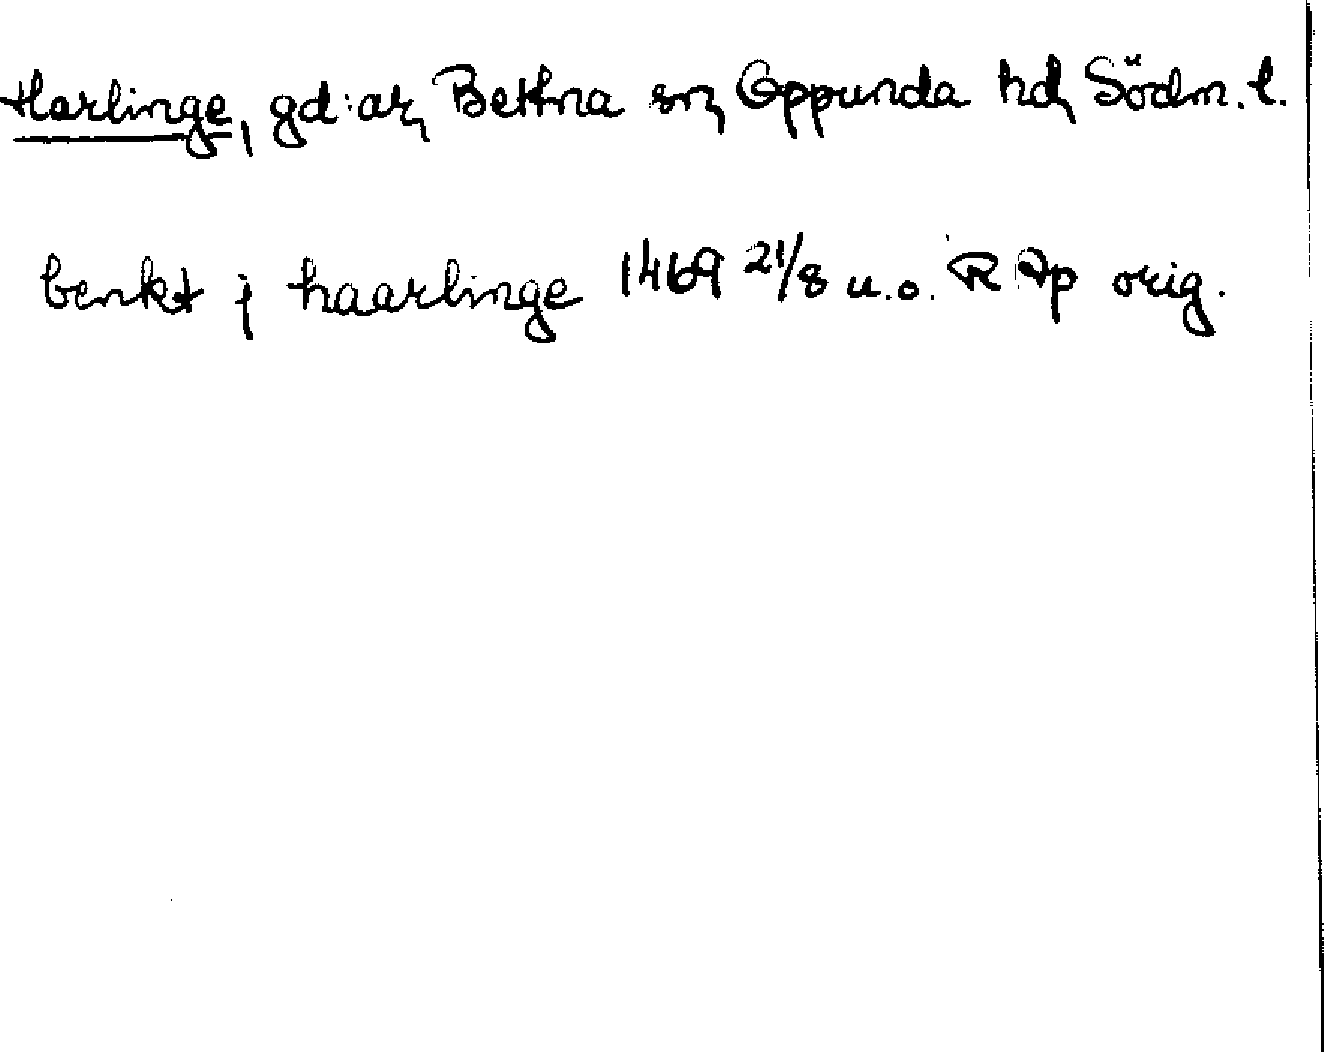 Harlinge, gd:ar, Bettna sn, Oppunda hd, Södm. l.
benkt j haarlinge 1469 21/8 u.o. RAp orig.